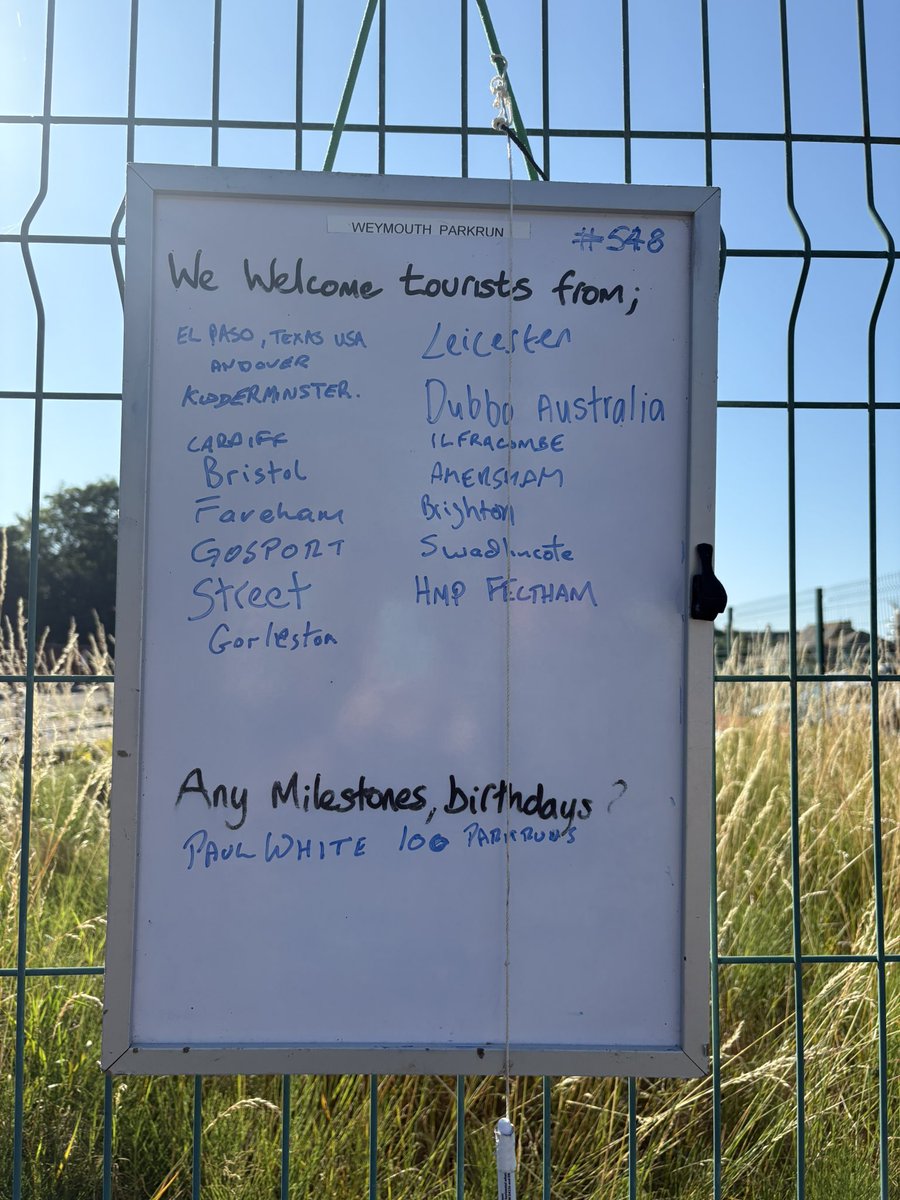 WEYMOUTH PARKRUN
#548
We Welcome tourists from;
EL PASO, TEXAS USA
ANDOVER
KIDDERMINSTER.
CARDIFF
Bristol
Fareham
GOSPORT
Street
Gorleston
Leicester
Dubbo Australia
ILFRACOMBE
AMERSHAM
Brighton
Swadlincote
HMP FELTHAM
Any Milestones, birthdays?
PAUL WHITE 100 PARKRUNS